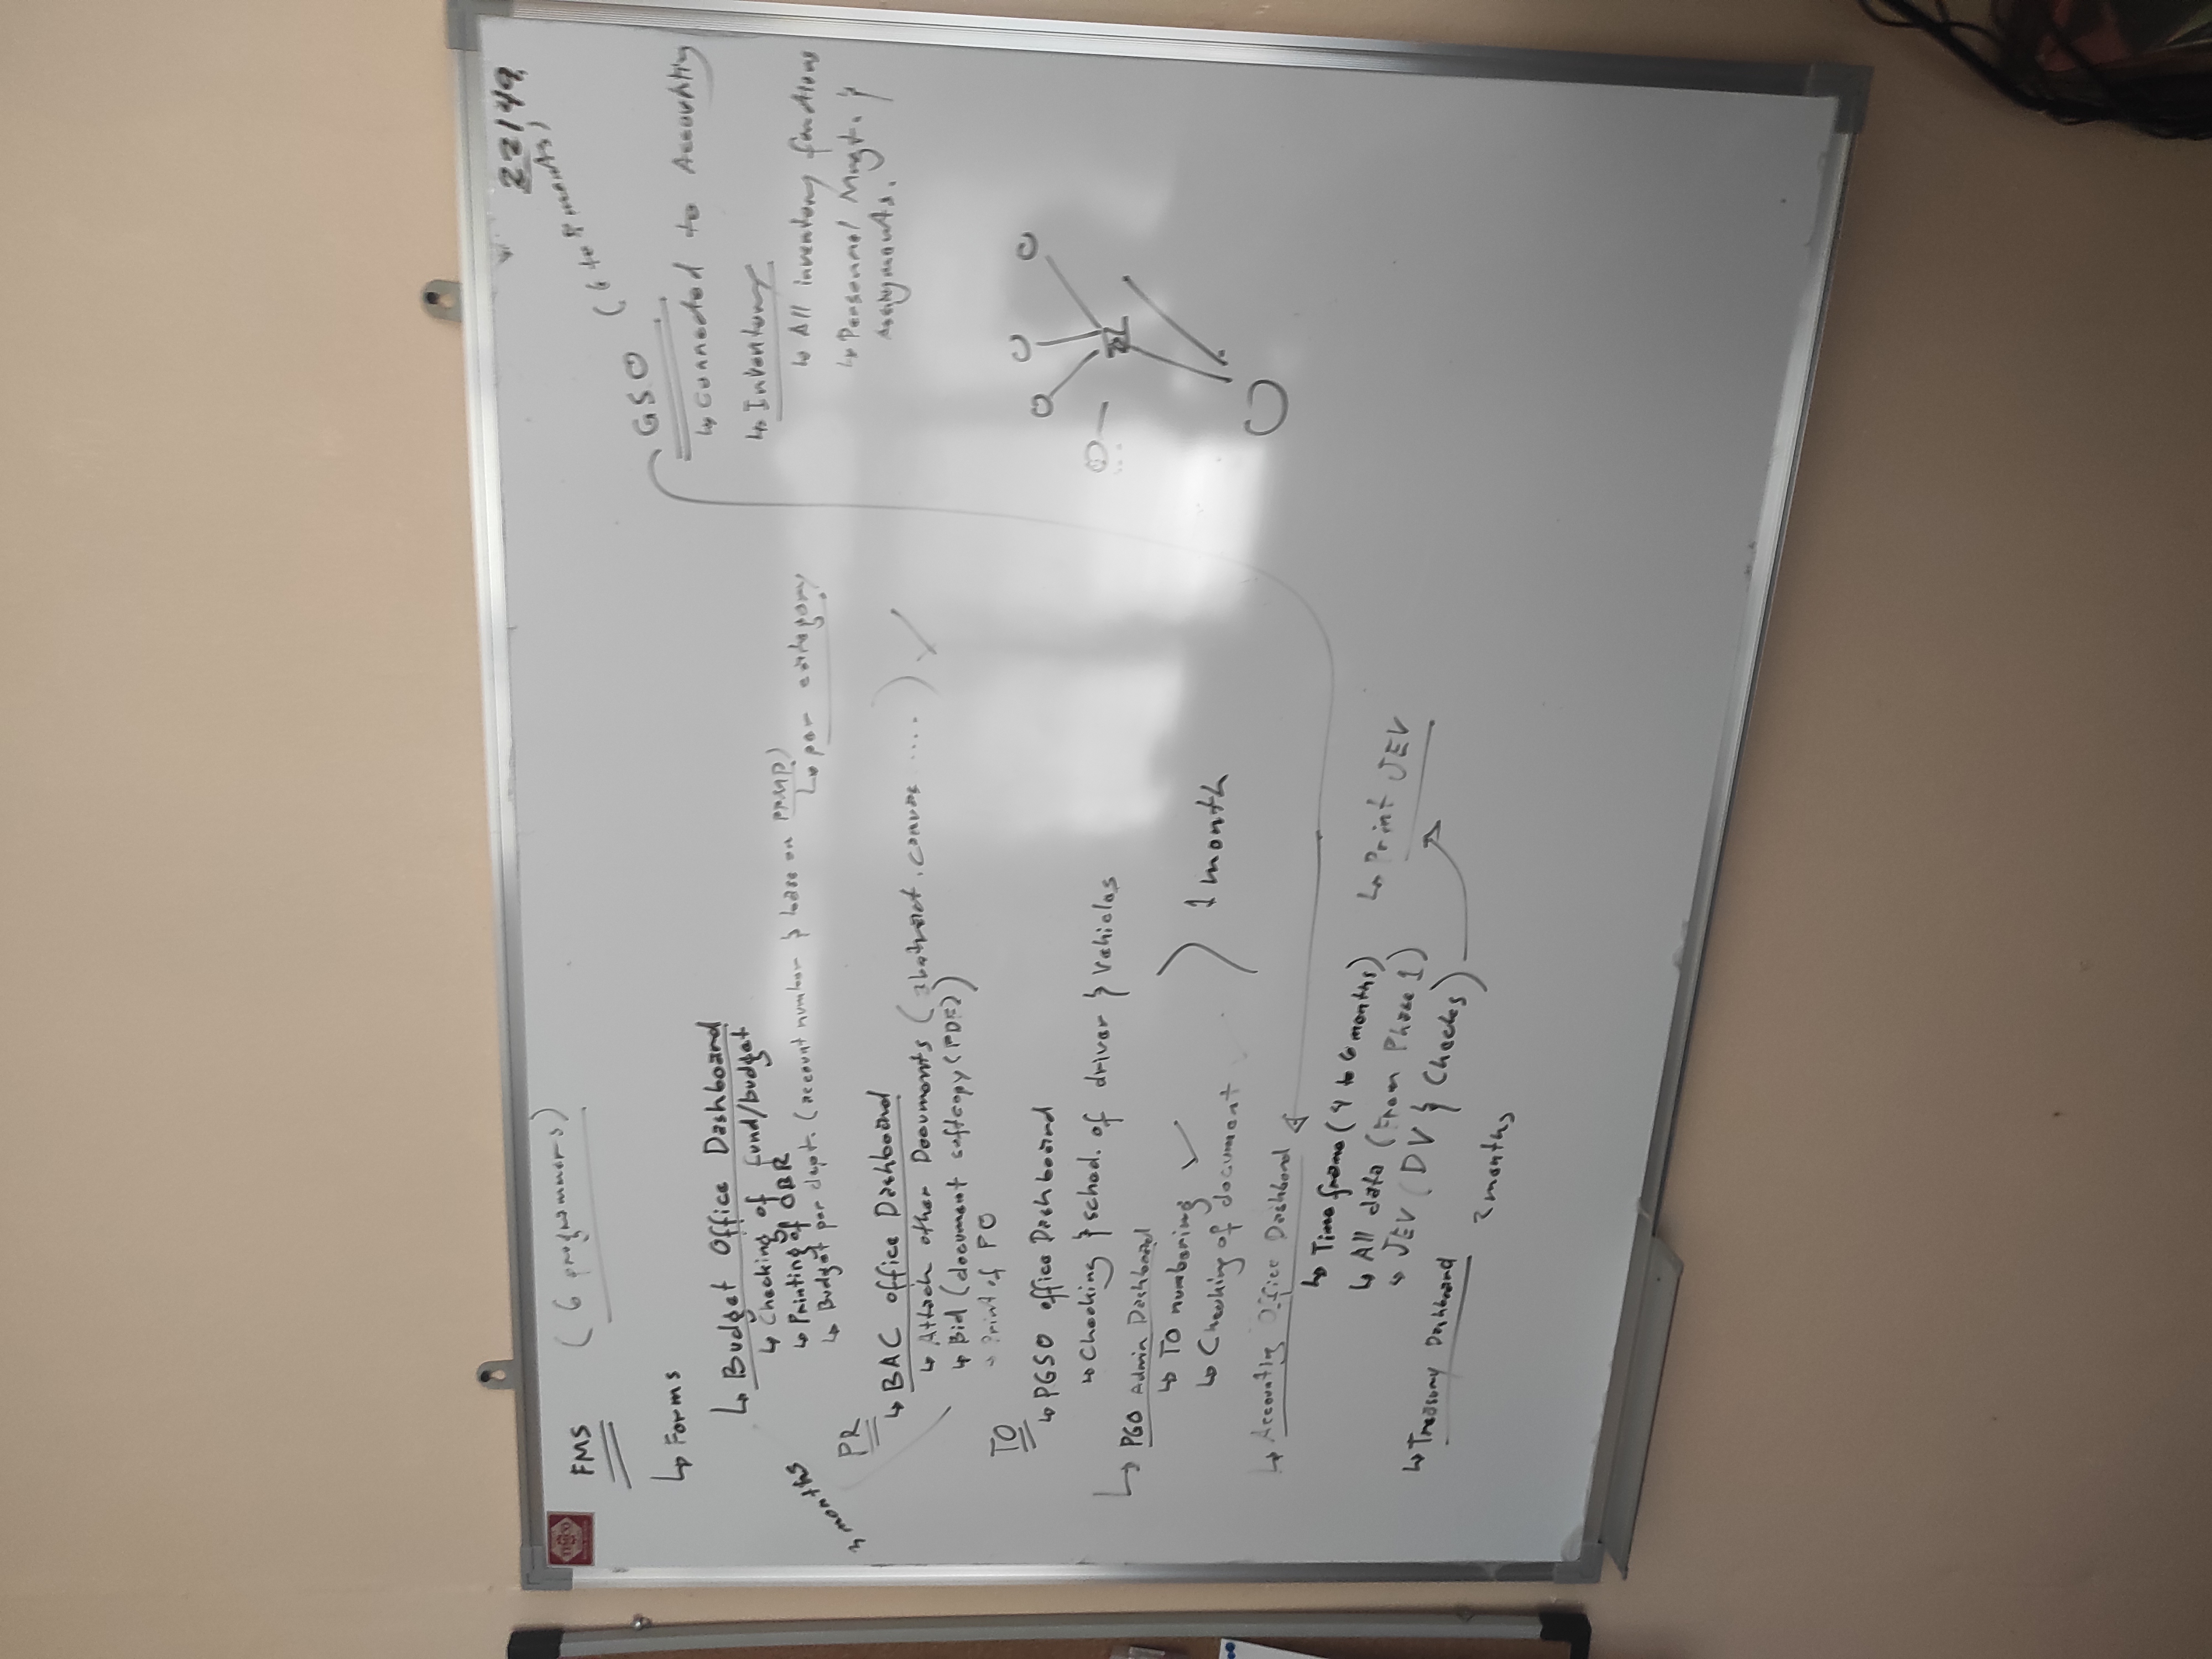 FMS (6 programmers)
↳ Forms
↳ Budget Office Dashboard
↳ Checking of fund/budget
↳ Printing of OBR
↳ Budget per dept. (account number & base on PPMP)
↳ per category
3 months
PR
↳ BAC office Dashboard
↳ Attach other Documents (abstract, canvas ....) ✓
↳ Bid (document softcopy (PDF))
Print of PO
TO
↳ PGSO office Dashboard
↳ Checking & sched. of driver & Vehicles
↳ PGO Admin Dashboard
↳ TO numbering ✓
↳ Checking of document
1 month
↳ Accounting Office Dashboard
↳ Time frame (4 to 6 months)
↳ All data (From Phase 1)
↳ JEV (DV & Checks)
↳ Print JEV
↳ Treasury Dashboard
2 months
22/49
GSO (6 to 8 months)
↳ Connected to Accounting
↳ Inventory
↳ All inventory functions
↳ Personnel Mngt. &
Assignments.